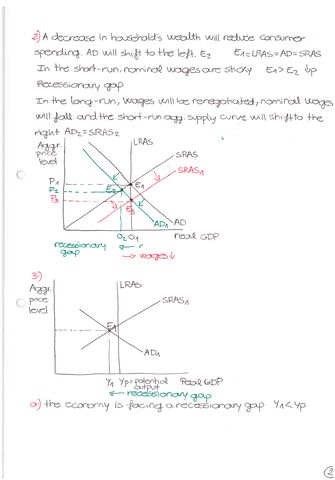 2) A decrease in household's wealth will reduce consumer
spending. AD will shift to the left. E2 E1=LRAS=AD=SRAS
In the short-run, nominal wages are sticky E1>E2 ↓p
Recessionary gap
In the long-run, wages will be renegotiated, nominal wages
will fall and the short-run agg. supply curve will shift to the
right AD2=SRAS2
Aggr. price level
LRAS
SRAS
SRAS1
P1
P2
P3
E1
E2
E3
AD
AD1
O2 O1 Real GDP
recessionary gap
→ wages ↓
3)
Aggr. price level
LRAS
SRAS1
E1
AD1
Y1 Yp=potential output Real GDP
← recessionary gap
a) the economy is facing a recessionary gap Y1<Yp
2